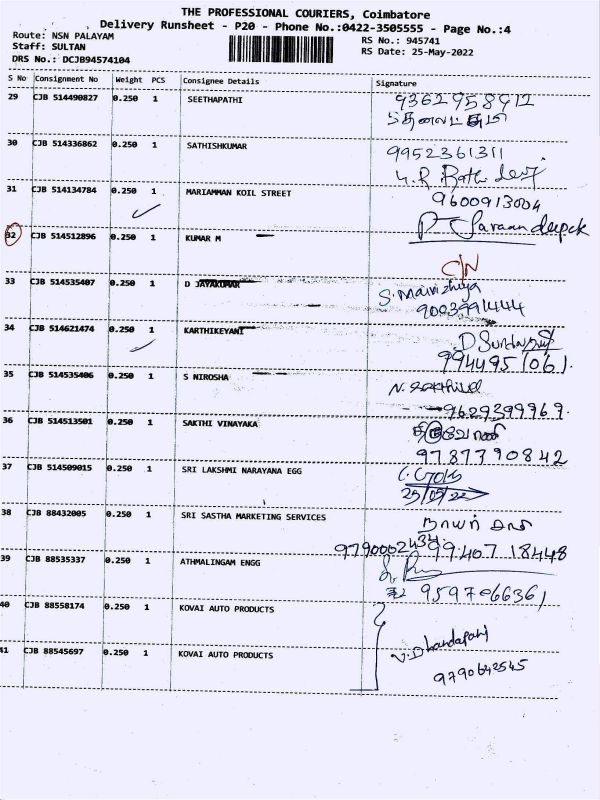 THE PROFESSIONAL COURIERS, Coimbatore
Delivery Runsheet - P20 - Phone No.:0422-3505555 - Page No.:4
Route: NSN PALAYAM
RS No.: 945741
Staff: SULTAN
RS Date: 25-May-2022
DRS No.: DCJB94574104
S No Consignment No Weight PCS Consignee Details Signature
29 CJB 514490827 0.250 1 SEETHAPATHI
9362958912
30 CJB 514336862 0.250 1 SATHISHKUMAR 9952361311
31 CJB 514134784 0.250 1 MARIAMMAN KOIL STREET 9600913004
32 CJB 514512896 0.250 1 KUMAR M
C/N
33 CJB 514535407 0.250 1 D JAYAKUMAR
9003991444
34 CJB 514621474 0.250 1 KARTHIKEYANI
9944951061
35 CJB 514535406 0.250 1 S NIROSHA
9629399969
36 CJB 514513501 0.250 1 SAKTHI VINAYAKA
9787390842
37 CJB 514509015 0.250 1 SRI LAKSHMI NARAYANA EGG
25/05/22
38 CJB 88432005 0.250 1 SRI SASTHA MARKETING SERVICES
9790002434 99407 18448
39 CJB 88535337 0.250 1 ATHMALINGAM ENGG
9597066361
40 CJB 88558174 0.250 1 KOVAI AUTO PRODUCTS
V. Dhandapani
41 CJB 88545697 0.250 1 KOVAI AUTO PRODUCTS
9790642545